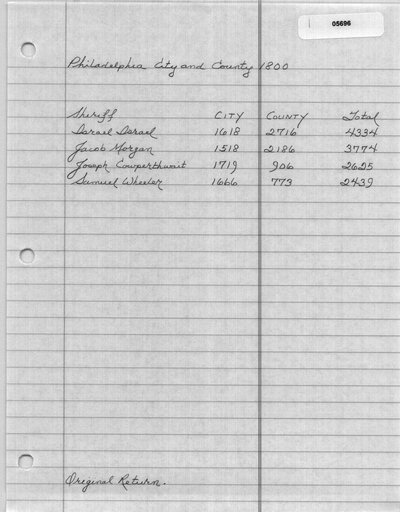 05696
Philadelphia City and County 1800
Sheriff CITY COUNTY Total
Israel Israel 1618 2716 4334
Jacob Morgan 1518 2186 3774
Joseph Cowperthwait 1719 906 2625
Samuel Wheeler 1666 773 2439
Original Return.